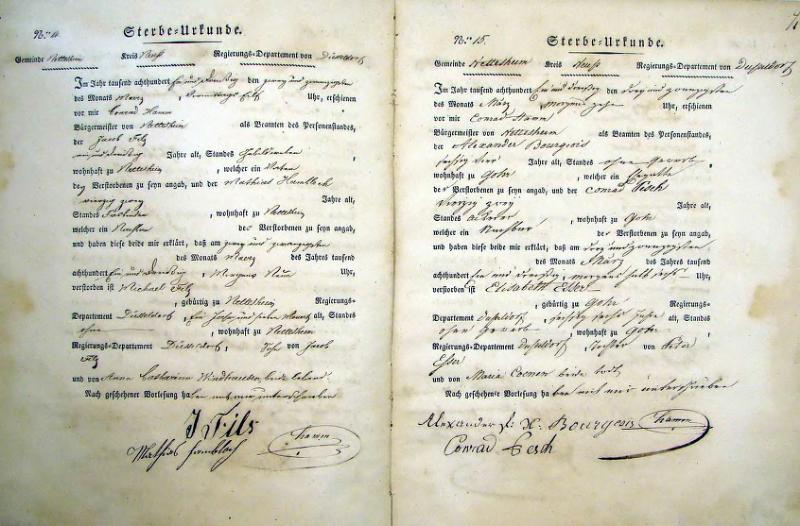 Sterbe-Urkunde.
Gemeinde Nettesheim Kreis Neuß Regierungs-Departement von Düsseldorf
Im Jahr tausend achthundert Ein und Dreyßig den zwey und zwanzigsten
des Monats Maerz, Uhr, erschienen
vor mir Conrad Hamm
Bürgermeister von Nettesheim als Beamten des Personenstandes,
der Jacob Filz
ein und dreißig Jahre alt, Standes
wohnhaft zu Nettesheim, welcher ein Vater
des Verstorbenen zu seyn angab, und der Mathias Hambloch
vierzig zwey Jahre alt,
Standes, wohnhaft zu Nettesheim
welcher ein Nachbar des Verstorbenen zu seyn angab,
und haben diese beide mir erklärt, daß am zwey und zwanzigsten
des Monats Maerz des Jahres tausend
achthundert Ein und Dreyßig, Morgens Neun Uhr,
verstorben ist Michael Filz
, gebürtig zu Nettesheim Regierungs-
Departement Düsseldorf, Ein Jahr und sieben Monath alt, Standes
ohne, wohnhaft zu Nettesheim
Regierungs-Departement Düsseldorf, Sohn von Jacob
Filz
und von Anna Catharina beide lebend.
Nach geschehener Vorlesung haben mit mir unterschrieben
J Fils
Mathias Hambloch
Hamm
No. 15. Sterbe-Urkunde.
Gemeinde Nettesheim Kreis Neuß Regierungs-Departement von Dusseldorf
Im Jahr tausend achthundert Ein und dreyßig den drey und zwanzigsten
des Monats März, morgens zehn Uhr, erschienen
vor mir Conrad Hamm
Bürgermeister von Nettesheim als Beamten des Personenstandes,
der Alexander Bourgeois
sechzig vier Jahre alt, Standes ohne Gewerb
wohnhaft zu Gohr, welcher ein Ehgatte
der Verstorbenen zu seyn angab, und der Conrad Pesch
vierzig zwey Jahre alt,
Standes ackerer, wohnhaft zu Gohr
welcher ein Nachbar der Verstorbenen zu seyn angab,
und haben diese beide mir erklärt, daß am drey und zwanzigsten
des Monats März des Jahres tausend
achthundert Ein und dreyßig, morgens halb sechs Uhr,
verstorben ist Elisabeth Esser
, gebürtig zu Gohr Regierungs-
Departement Dusseldorf, sechzig sechs Jahre alt, Standes
ohne Gewerb, wohnhaft zu Gohr
Regierungs-Departement Dusseldorf, Tochter von Peter
Esser
und von Maria Coenen beide todt
Nach geschehener Vorlesung haben mit mir unterschrieben
Alexander X. Bourgeois Hamm
Conrad Pesch